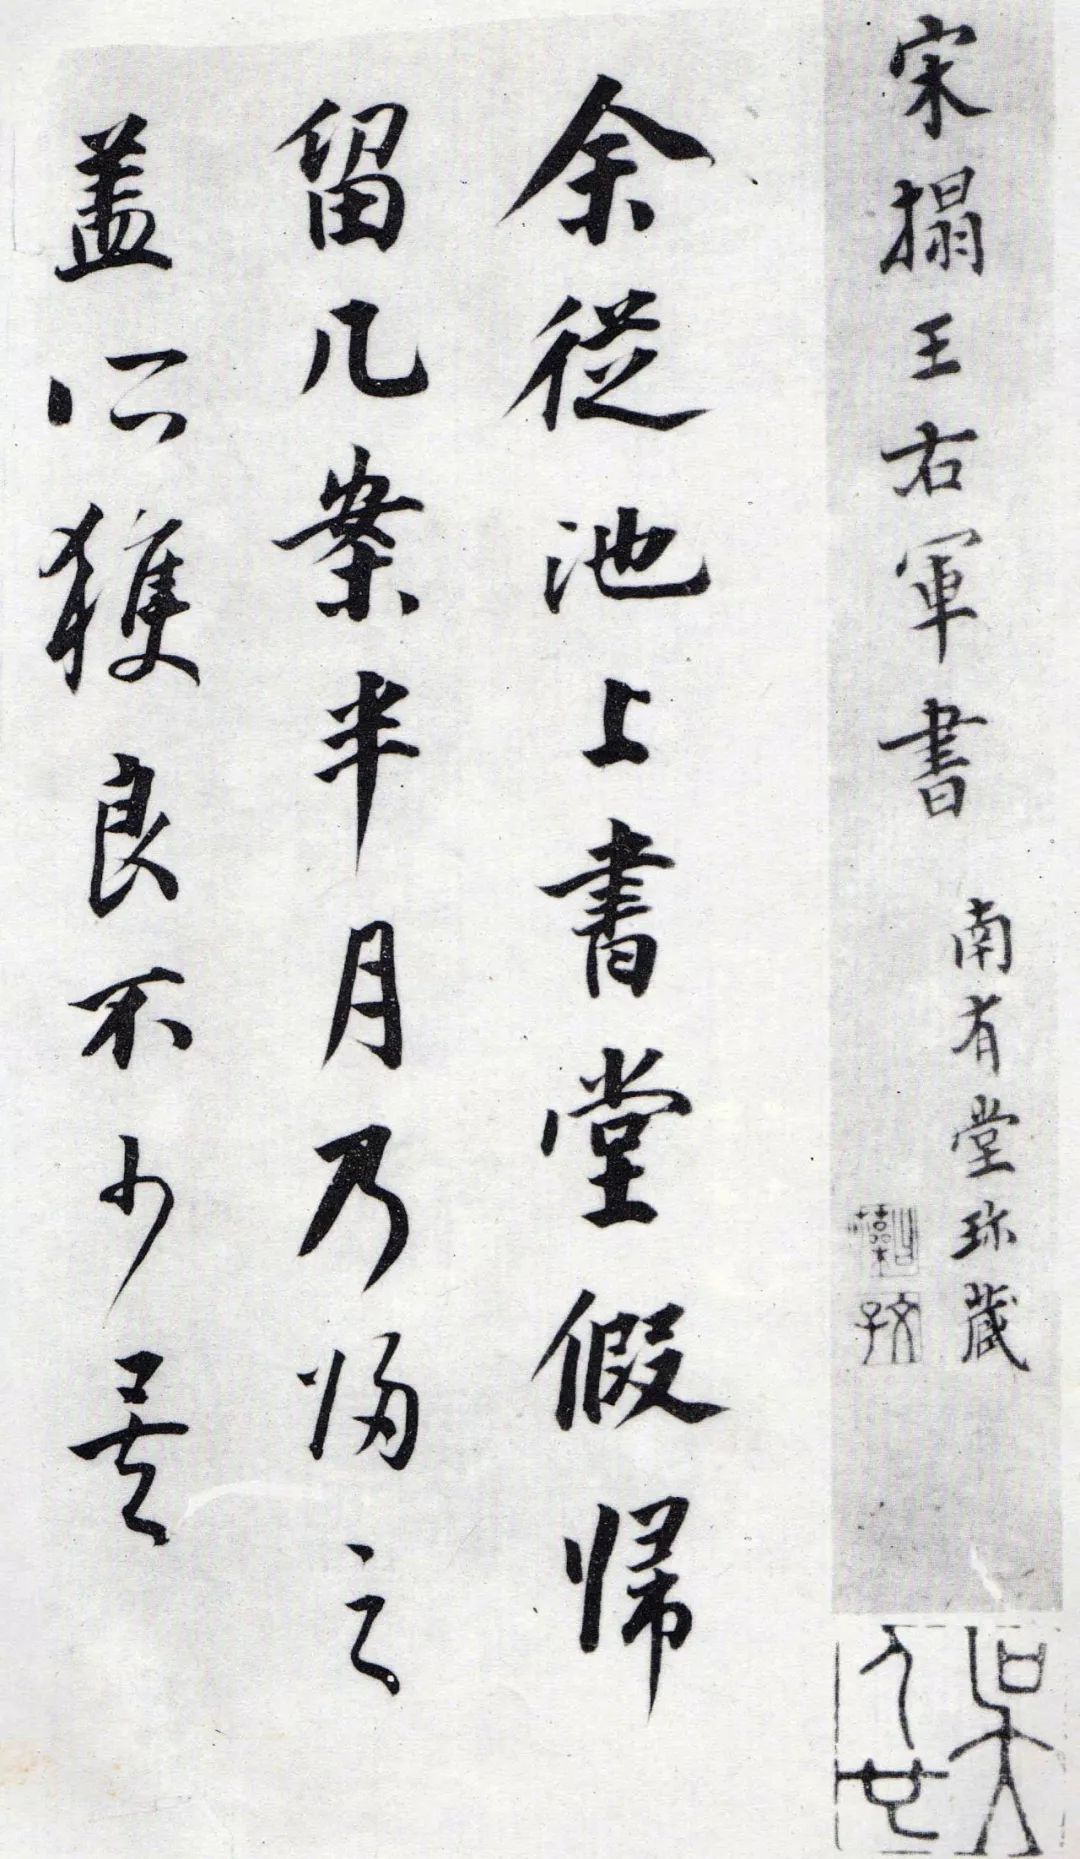 宋搨王右軍書
南有堂珎藏
余從池上書堂假歸
留几案半月乃歸之
盖所獲良不少矣